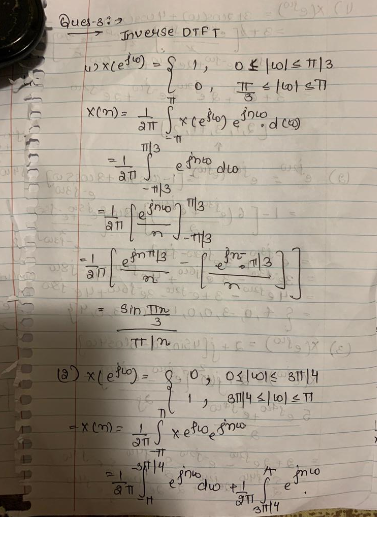 Ques-3:→
→ Inverse DTFT
1) X(e^jω) = { 1, 0 ≤ |ω| ≤ π/3
0, π/3 ≤ |ω| ≤ π
X(n) = 1/2π ∫_-π^π X(e^jω) e^jnω . d(ω)
= 1/2π ∫_-π/3^π/3 e^jnω dω
= 1/2π [e^jnω / n]_-π/3^π/3
= 1/2π [e^jnπ/3 / n - [e^jn.π/3 / n]]
= sin πn/3 / π|n
(2) X(e^jω) = { 0, 0≤|ω|≤ 3π/4
1, 3π/4 ≤|ω|≤π
= X(n) = 1/2π ∫_-π^π x e^jω e^jnω
= 1/2π ∫_-π^-3π/4 e^jnω dω + 1/2π ∫_3π/4^π e^jnω .